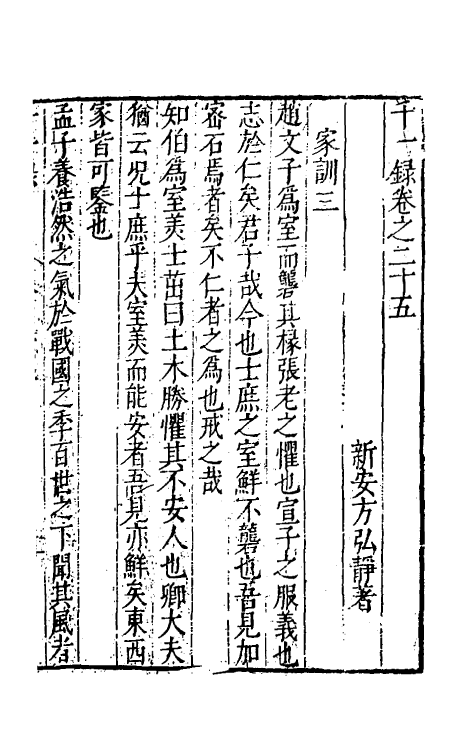 千一録卷之二十五
新安方弘靜著
家訓三
趙文子爲室而礱其椽張老之懼也宣子之服義也
志於仁矣君子哉今也士庶之室鮮不礱也吾見加
宻石焉者矣不仁者之爲也戒之哉
知伯爲室美士茁曰土木勝懼其不安人也卿大夫
猶云况士庶乎夫室美而能安者吾見亦鮮矣東西
家皆可鑒也
孟子養浩然之氣於戰國之季百世之下聞其風者